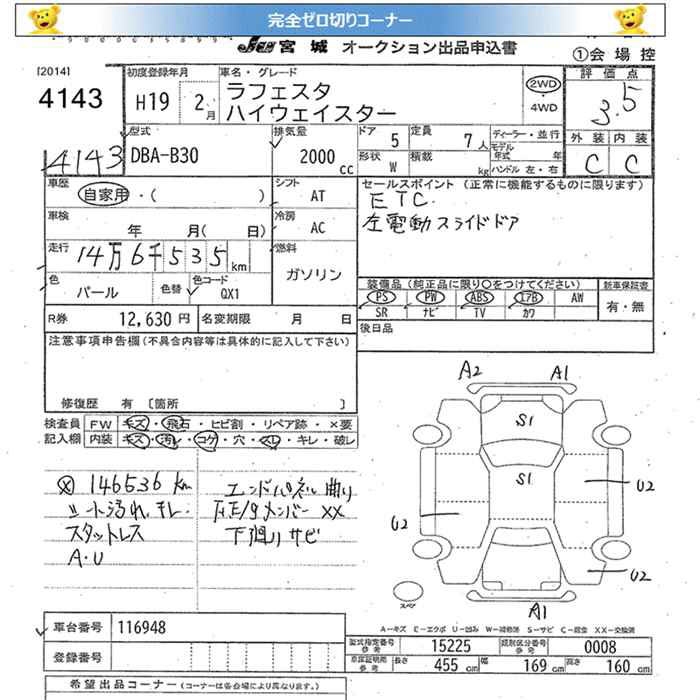 完全ゼロ切りコーナー
JU宮城 オークション出品申込書
①会場控
[2014]
4143
初度登録年月
H19 2月
車名・グレード
ラフェスタ
ハイウェイスター
2WD
・
4WD
評価点
3.5
外装 内装
C C
4143
型式
DBA-B30
排気量
2000 cc
ドア 5
定員 7人
ディーラー・並行
形状 W
積載 kg
モデル年式 年
ハンドル 左・右
車歴
自家用・( )
シフト
AT
セールスポイント (正常に機能するものに限ります)
ETC.
左電動スライドドア
車検
年 月( 日)
冷房
AC
走行
14万6千535km
燃料
ガソリン
色
パール
色替
色コード
QX1
装備品 (純正品に限り○をつけてください)
新車保証書
PS PW ABS エアB AW
SR ナビ TV カワ
有・無
R券 12,630円
名変期限 月 日
後日品
注意事項申告欄(不具合内容等は具体的に記入して下さい)
修復歴 有 [箇所 ]
検査員
記入欄
FW キズ・飛石・ヒビ割・リペア跡・×要
内装 キズ・汚レ・コゲ・穴・スレ・キレ・破レ
146536km
シート汚れ、キレ.
スタットレス
A・U
エンドパネル曲り
メンバー XX
下廻りサビ
A2 A1
S1
S1
U2
U2
U2
A1
スペア
A―キズ E―エクボ U―凹み W―補修跡 S―サビ C―腐食 XX―交換済
車台番号 116948
登録番号
型式指定番号 参考 15225
類別区分番号 参考 0008
車庫証明用 参考 長さ 455cm 幅 169cm 高さ 160cm
希望出品コーナー (コーナーは各会場により異なります。)